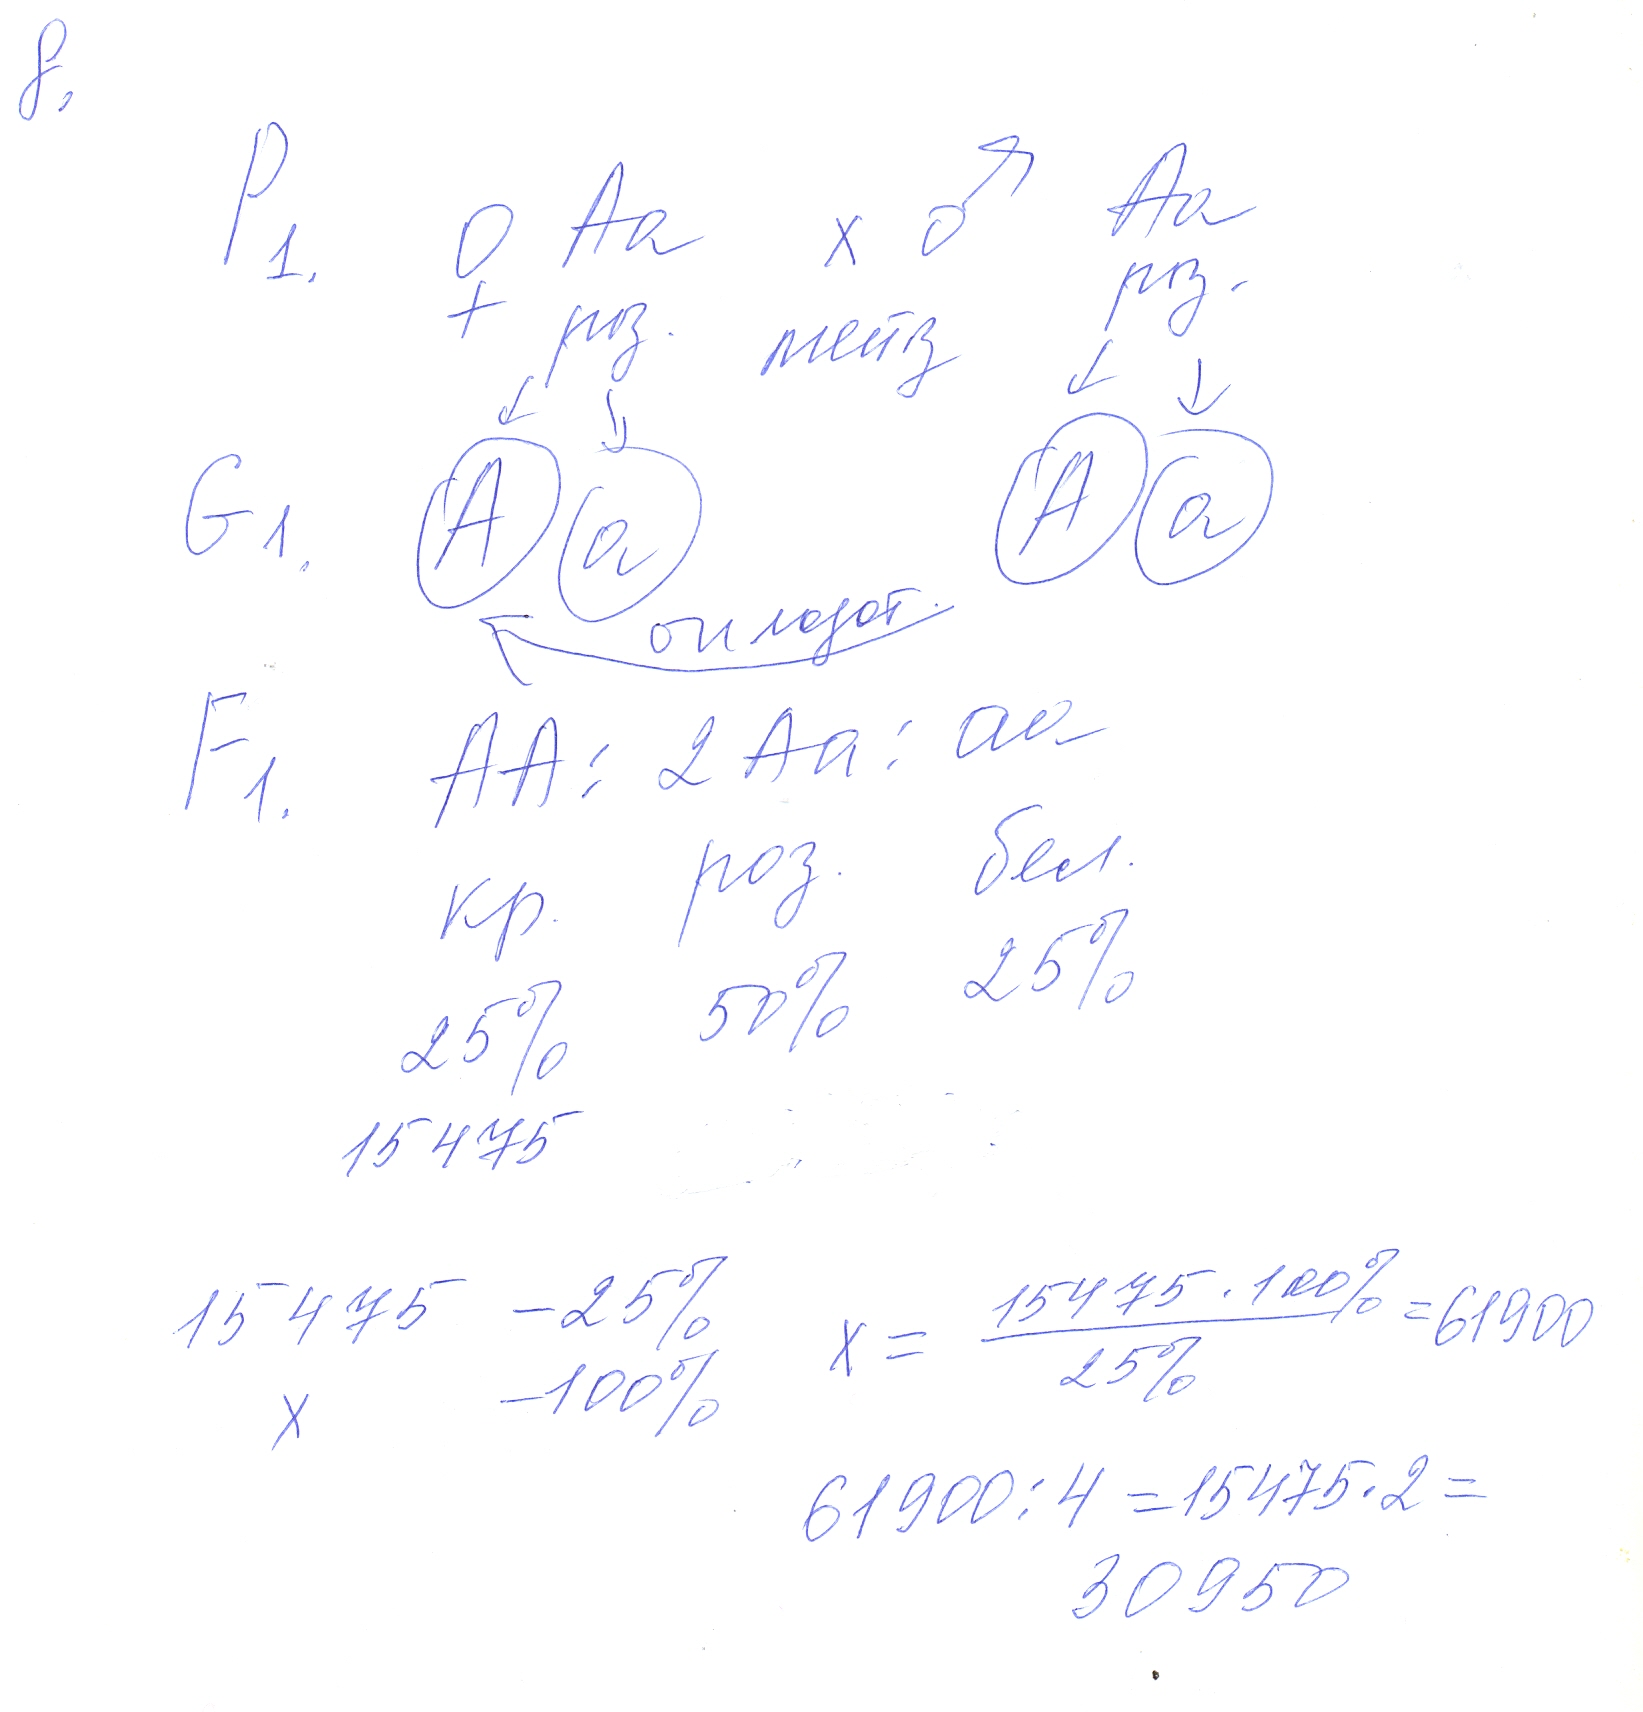 8.
P1. ♀ Aa x ♂ Aa
роз. мейоз роз.
G1. A a A a
оплодот.
F1. AA : 2 Aa : aa
кр. роз. бел.
25% 50% 25%
15475
15475 – 25%
x – 100%
x = 15475 · 100% / 25% = 61900
61900 : 4 = 15475 · 2 =
30950